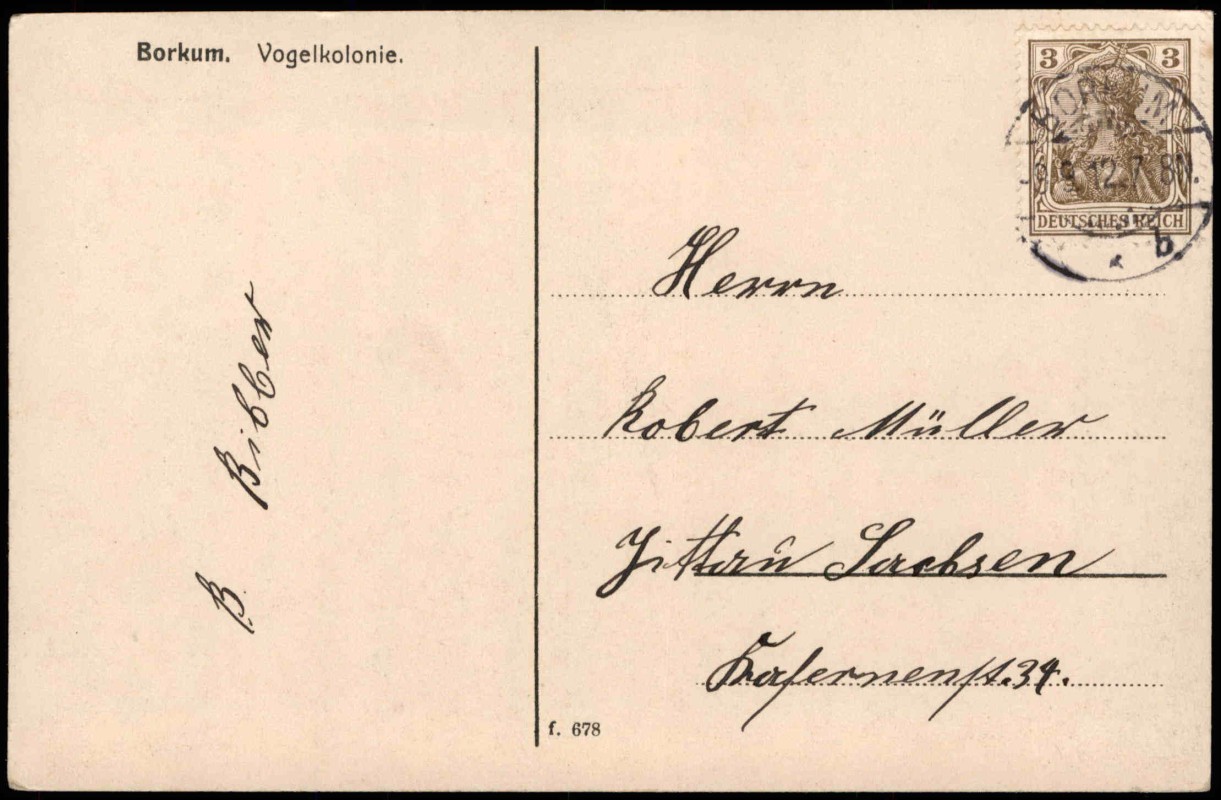 Borkum. Vogelkolonie.
3 3
BORKUM
9.12.7 8N.
DEUTSCHES REICH
b.
Herrn
Robert Müller
Zittau Sachsen
Kasernenst. 34.
B. Bibber
f. 678